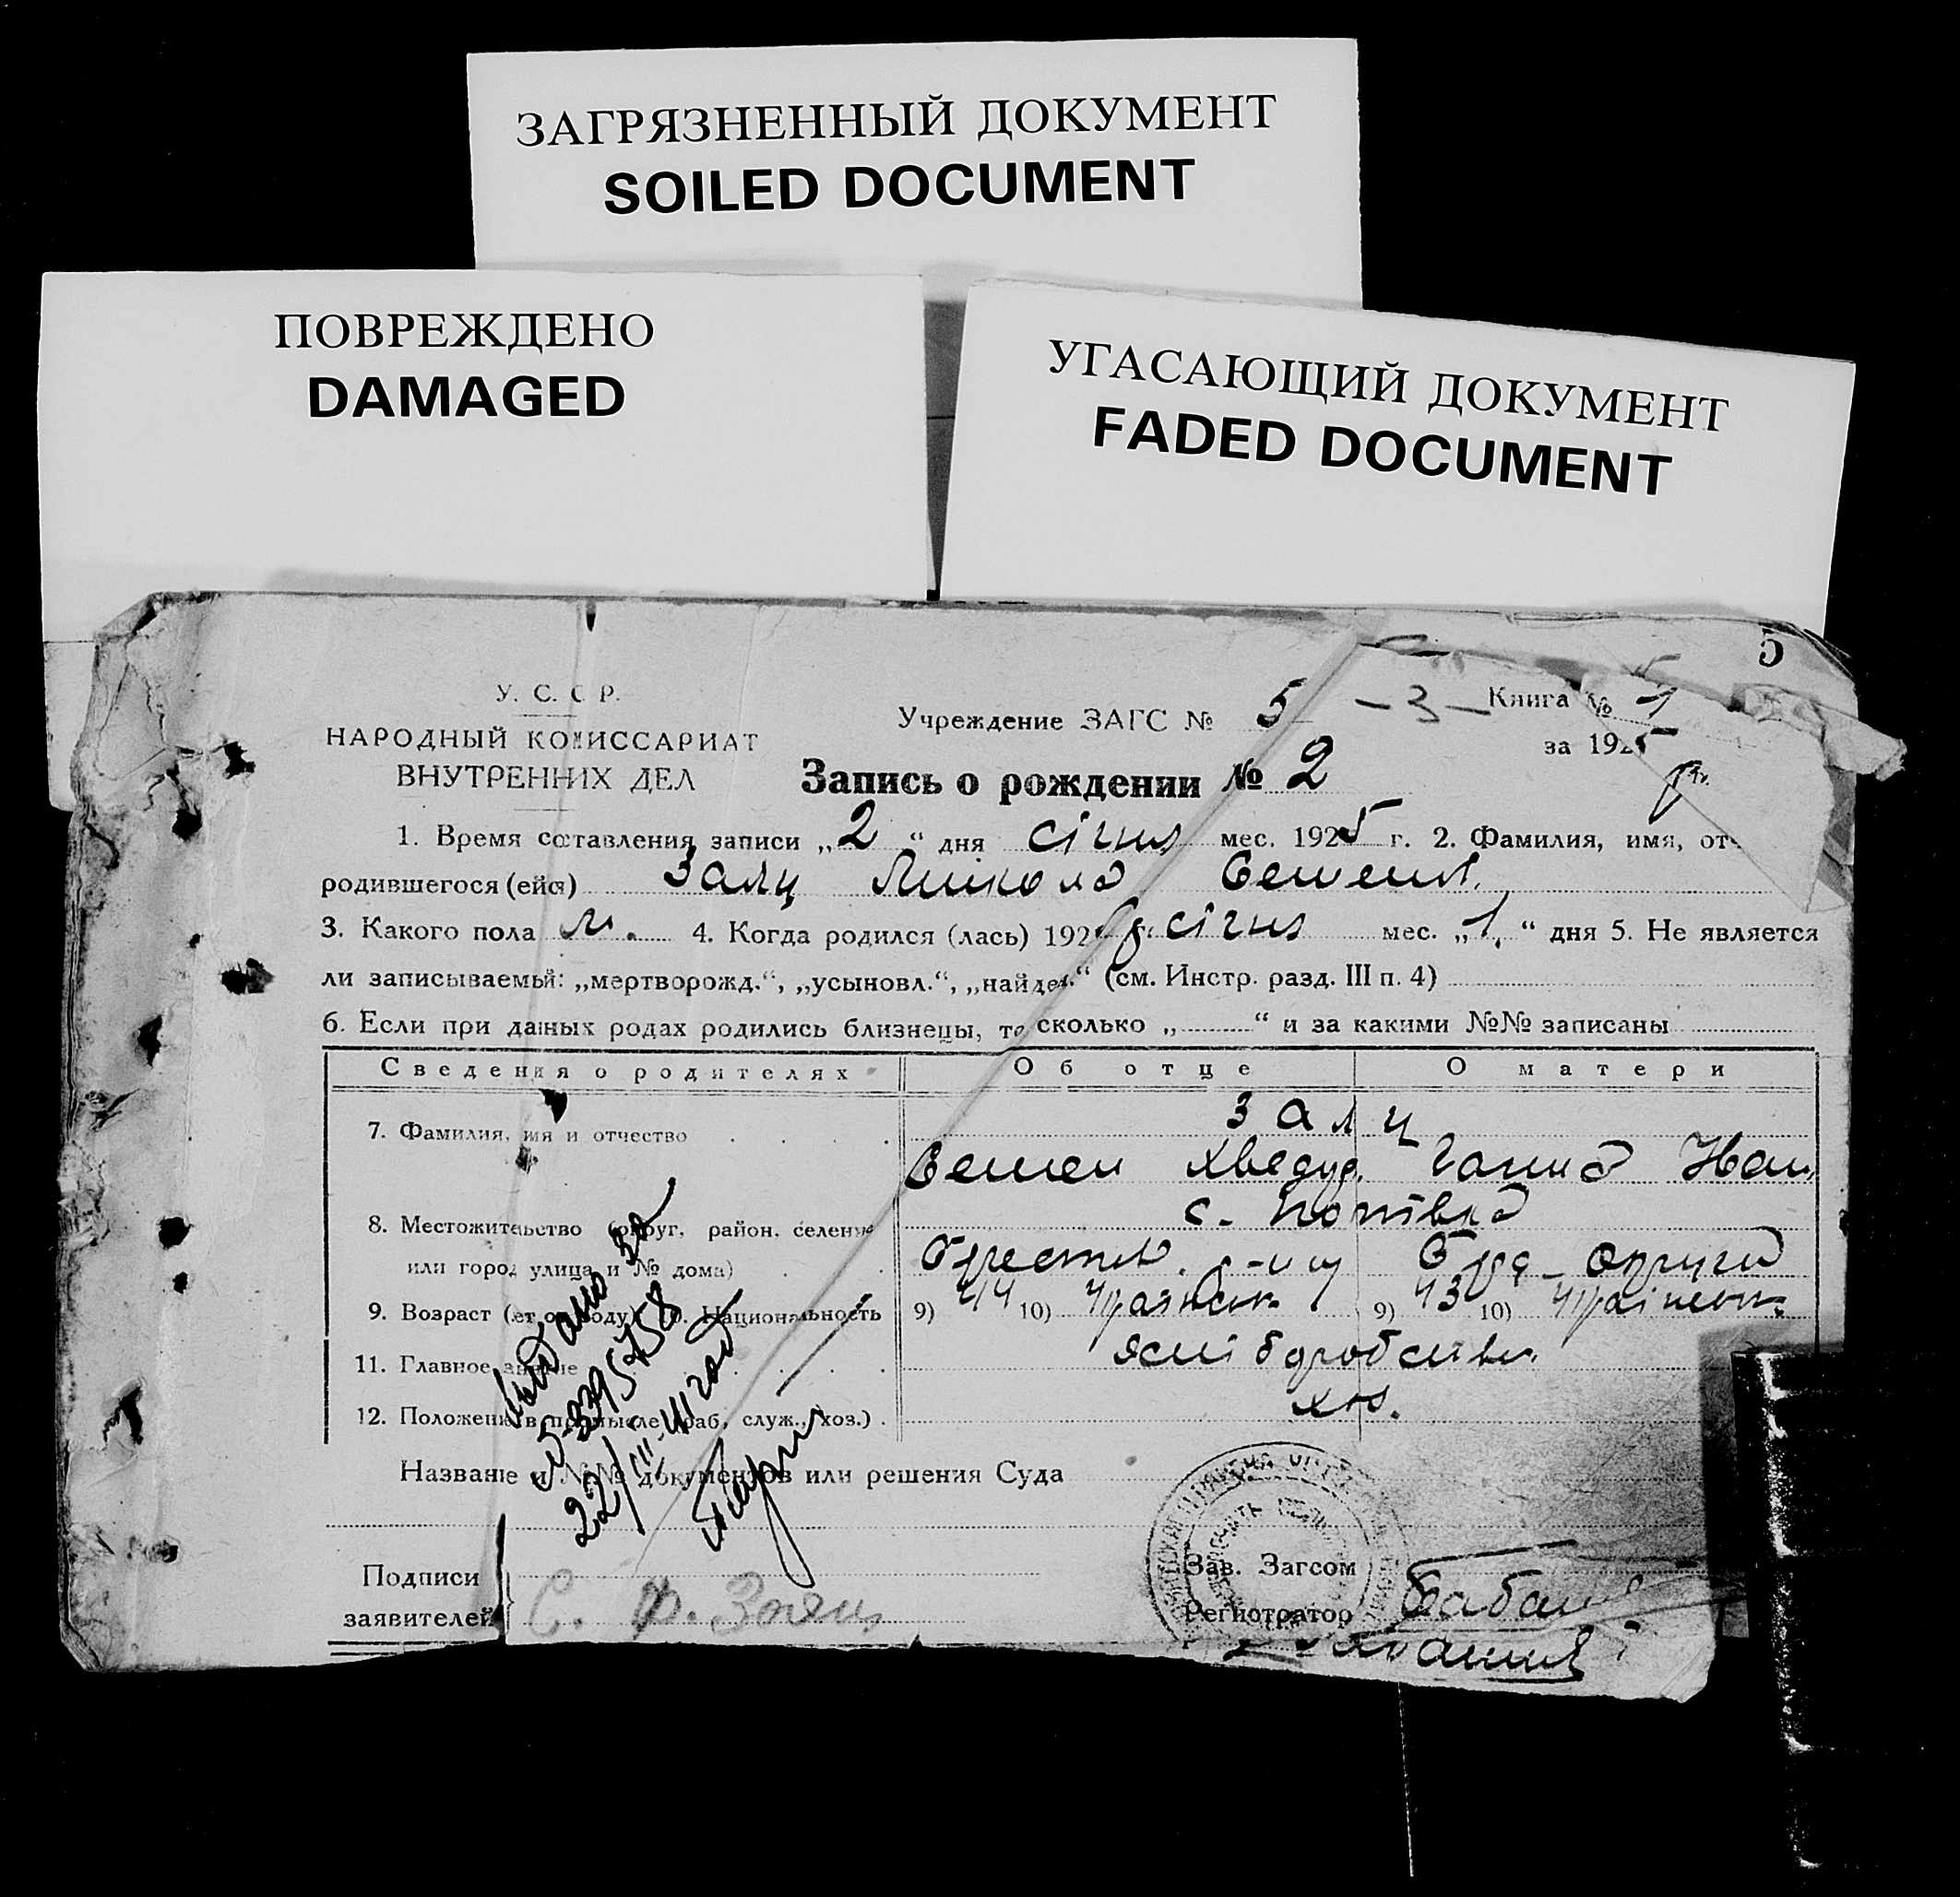 ЗАГРЯЗНЕННЫЙ ДОКУМЕНТ
SOILED DOCUMENT
ПОВРЕЖДЕНО
DAMAGED
УГАСАЮЩИЙ ДОКУМЕНТ
FADED DOCUMENT
5
У. С. С Р.
НАРОДНЫЙ КОМИССАРИАТ
ВНУТРЕННИХ ДЕЛ
Учреждение ЗАГС № 5 -3- Книга № 1
за 1925
Запись о рождении № 2
1. Время составления записи „2“ дня січня мес. 1925 г. 2. Фамилия, имя, отч
родившегося (ейся) Заяц Микола Семенов.
3. Какого пола м. 4. Когда родился (лась) 192 січня мес. „1“ дня 5. Не является
ли записываемый: „мертворожд.“, „усыновл.“, „найден“ (см. Инстр. разд. III п. 4)
6. Если при данных родах родились близнецы, то сколько „ “ и за какими №№ записаны
Сведения о родителях Об отце О матери
7. Фамилия, имя и отчество
Заяц
Семен Хведор. Ганна Иван
8. Местожительство (округ, район, селение
или город улица и № дома)
с.
р-ну округи
9. Возраст (лет от роду) 10. Национальность 9) 44 10) 9) 43 10)
11. Главное занятие
12. Положение в промысле (раб, служ., хоз.)
Название и №№ документов или решения Суда
Подписи
заявителей
С. Ф. Заяц
Зав. Загсом
Регистратор